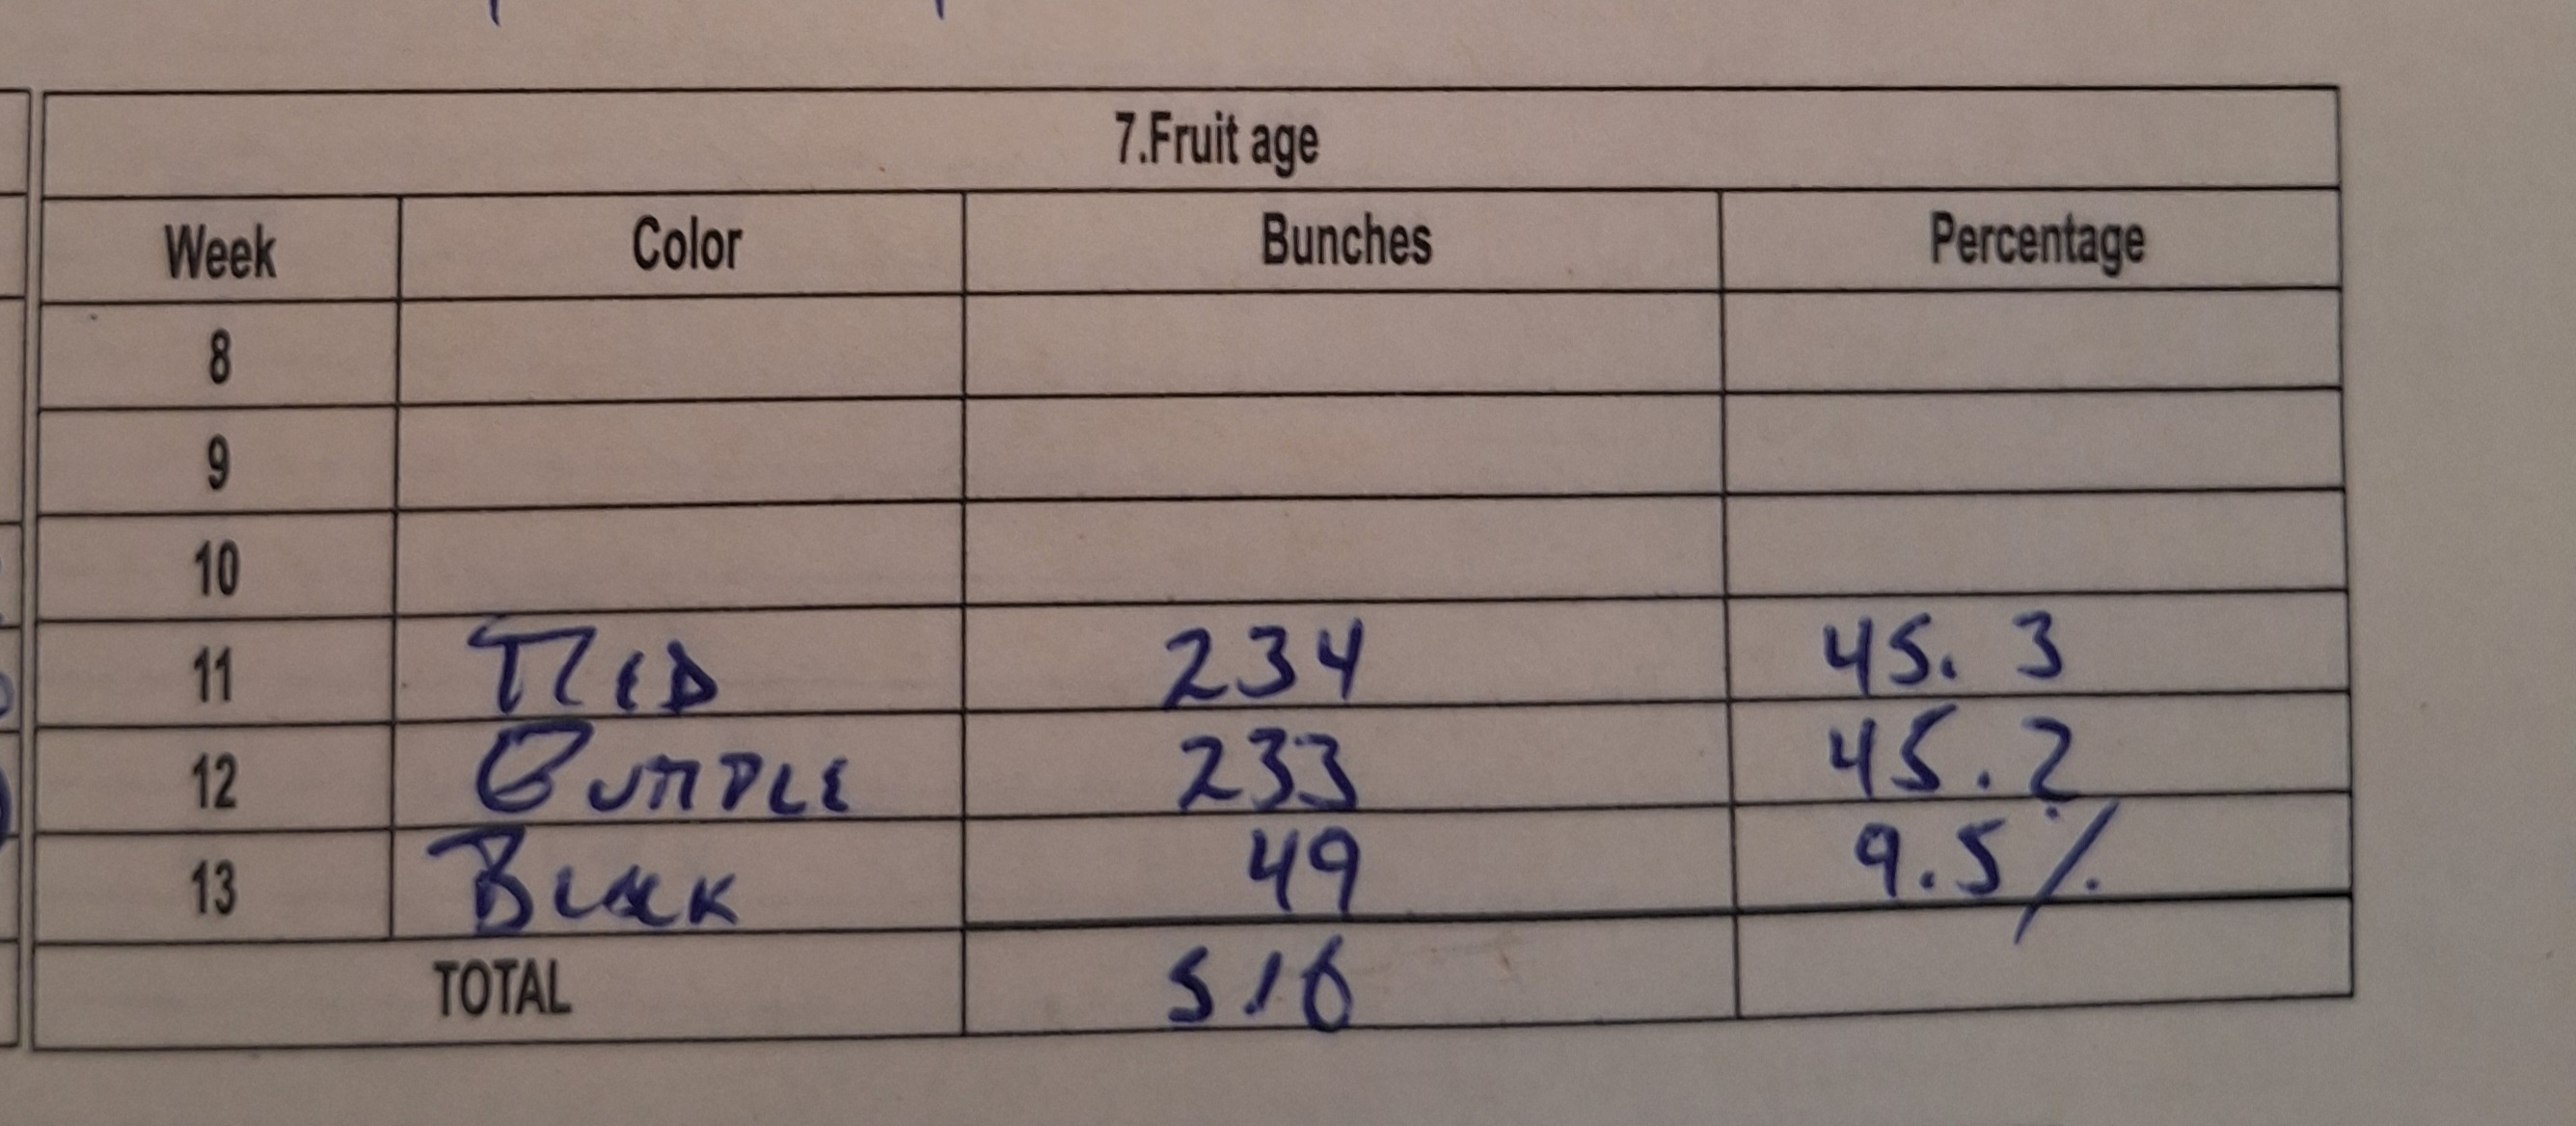 7.Fruit age
Week Color Bunches Percentage
8
9
10
11 RED 234 45.3
12 PURPLE 233 45.2
13 BLACK 49 9.5%
TOTAL 516